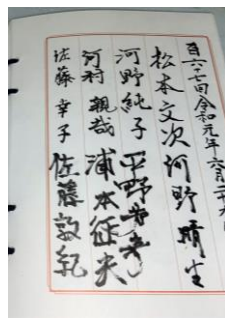 百六十七回令和元年六月二十九
松本文次 河野晴生
河野純子 平野
河村親哉 浦本征夫
佐藤幸子 佐藤敦紀